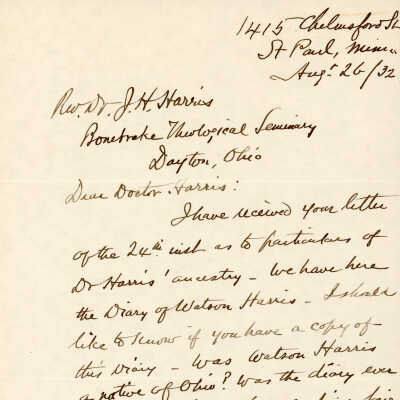 1415 Chelmsford St
St Paul, Minn
Aug. 26/32
Rev. Dr. J. H. Harris
Bonebrake Theological Seminary
Dayton, Ohio
Dear Doctor Harris:
I have received your letter
of the 24th inst as to particulars of
Dr Harris' ancestry - We have here
the Diary of Watson Harris - I shall
like to know if you have a copy of
this diary - Was Watson Harris
a native of Ohio? Was the diary ever